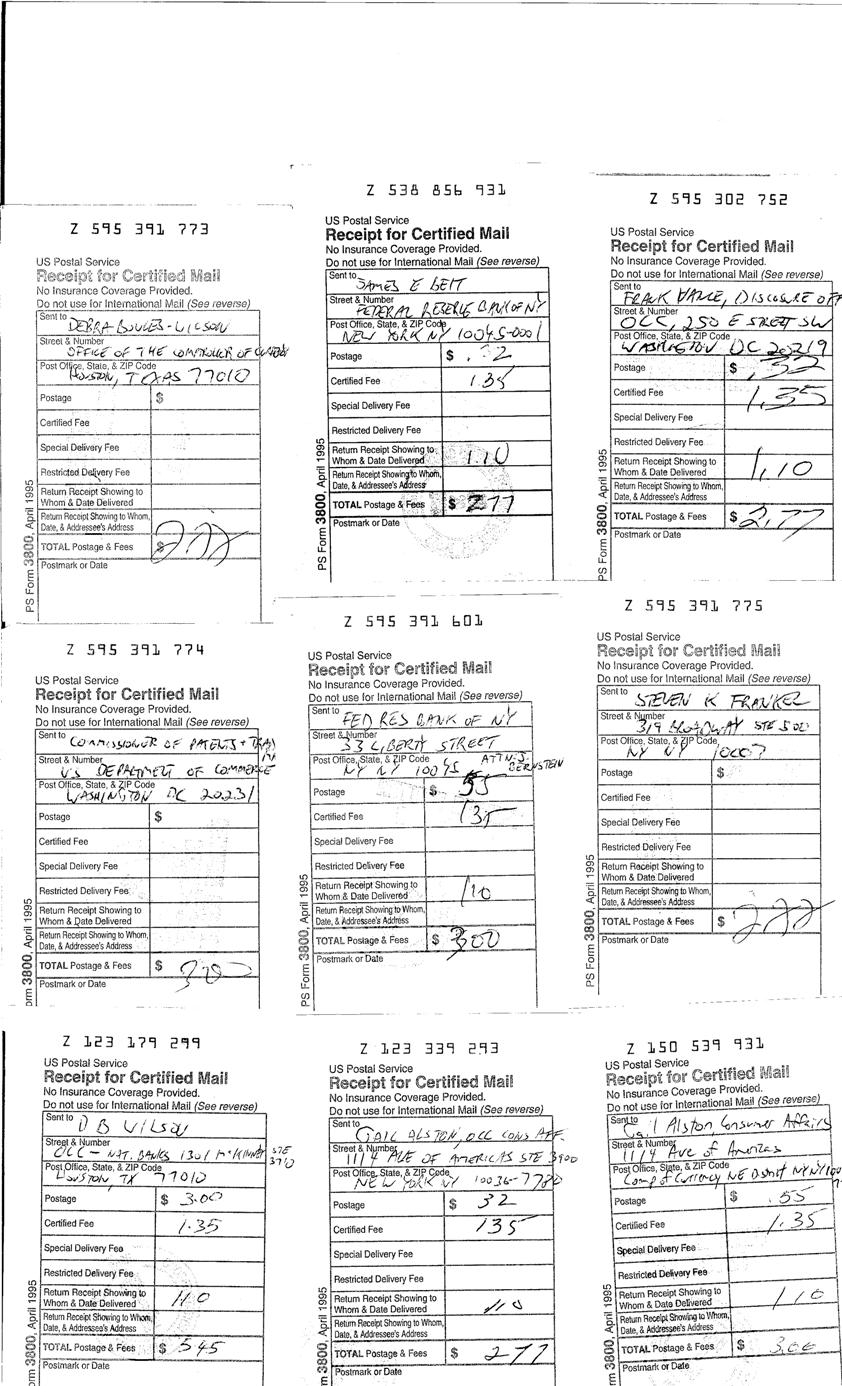 Z 595 391 773
US Postal Service
Receipt for Certified Mail
No Insurance Coverage Provided.
Do not use for International Mail (See reverse)
Sent to
DEBRA BOWLES-WILSON
Street & Number
OFFICE OF THE COMPTROLLER OF
Post Office, State, & ZIP Code
HOUSTON, TEXAS 77010
Postage $
Certified Fee
Special Delivery Fee
Restricted Delivery Fee
Return Receipt Showing to
Whom & Date Delivered
Return Receipt Showing to Whom,
Date, & Addressee's Address
TOTAL Postage & Fees $
Postmark or Date
PS Form 3800, April 1995
Z 538 856 931
US Postal Service
Receipt for Certified Mail
No Insurance Coverage Provided.
Do not use for International Mail (See reverse)
Sent to
JAMES E
Street & Number
FEDERAL RESERVE BANK OF NY
Post Office, State, & ZIP Code
NEW YORK NY 10045-0001
Postage $ .32
Certified Fee 1.35
Special Delivery Fee
Restricted Delivery Fee
Return Receipt Showing to
Whom & Date Delivered 1.10
Return Receipt Showing to Whom,
Date, & Addressee's Address
TOTAL Postage & Fees $ 277
Postmark or Date
PS Form 3800, April 1995
Z 595 302 752
US Postal Service
Receipt for Certified Mail
No Insurance Coverage Provided.
Do not use for International Mail (See reverse)
Sent to
FRANK VANCE, DISCLOSURE OFF
Street & Number
OCC, 250 E STREET SW
Post Office, State, & ZIP Code
WASHINGTON DC 20219
Postage $ .32
Certified Fee 1.35
Special Delivery Fee
Restricted Delivery Fee
Return Receipt Showing to
Whom & Date Delivered 1.10
Return Receipt Showing to Whom,
Date, & Addressee's Address
TOTAL Postage & Fees $ 2.77
Postmark or Date
PS Form 3800, April 1995
Z 595 391 774
US Postal Service
Receipt for Certified Mail
No Insurance Coverage Provided.
Do not use for International Mail (See reverse)
Sent to
COMMISSIONER OF PATENTS +
Street & Number
US DEPARTMENT OF COMMERCE
Post Office, State, & ZIP Code
WASHINGTON DC 20231
Postage $
Certified Fee
Special Delivery Fee
Restricted Delivery Fee
Return Receipt Showing to
Whom & Date Delivered
Return Receipt Showing to Whom,
Date, & Addressee's Address
TOTAL Postage & Fees $
Postmark or Date
orm 3800, April 1995
Z 595 391 601
US Postal Service
Receipt for Certified Mail
No Insurance Coverage Provided.
Do not use for International Mail (See reverse)
Sent to
FED RES BANK OF NY
Street & Number
33 LIBERTY STREET
Post Office, State, & ZIP Code
NY NY 10045 ATTN: S. BERNSTEIN
Postage $ 55
Certified Fee 135
Special Delivery Fee
Restricted Delivery Fee
Return Receipt Showing to
Whom & Date Delivered 110
Return Receipt Showing to Whom,
Date, & Addressee's Address
TOTAL Postage & Fees $ 300
Postmark or Date
PS Form 3800, April 1995
Z 595 391 775
US Postal Service
Receipt for Certified Mail
No Insurance Coverage Provided.
Do not use for International Mail (See reverse)
Sent to
STEVEN K FRANKEL
Street & Number
319 BROADWAY STE 500
Post Office, State, & ZIP Code
NY NY 10007
Postage $
Certified Fee
Special Delivery Fee
Restricted Delivery Fee
Return Receipt Showing to
Whom & Date Delivered
Return Receipt Showing to Whom,
Date, & Addressee's Address
TOTAL Postage & Fees $
Postmark or Date
PS Form 3800, April 1995
Z 123 179 299
US Postal Service
Receipt for Certified Mail
No Insurance Coverage Provided.
Do not use for International Mail (See reverse)
Sent to
D B WILSON
Street & Number
OCC - NAT. BANKS 1301 McKINNEY STE 3710
Post Office, State, & ZIP Code
HOUSTON TX 77010
Postage $ 3.00
Certified Fee 1.35
Special Delivery Fee
Restricted Delivery Fee
Return Receipt Showing to
Whom & Date Delivered 1.10
Return Receipt Showing to Whom,
Date, & Addressee's Address
TOTAL Postage & Fees $ 545
Postmark or Date
orm 3800, April 1995
Z 123 339 293
US Postal Service
Receipt for Certified Mail
No Insurance Coverage Provided.
Do not use for International Mail (See reverse)
Sent to
GAIL ALSTON, OCC CONS AFF.
Street & Number
1114 AVE OF AMERICAS STE 3900
Post Office, State, & ZIP Code
NEW YORK NY 10036-7780
Postage $ 32
Certified Fee 135
Special Delivery Fee
Restricted Delivery Fee
Return Receipt Showing to
Whom & Date Delivered 110
Return Receipt Showing to Whom,
Date, & Addressee's Address
TOTAL Postage & Fees $ 277
Postmark or Date
orm 3800, April 1995
Z 150 539 931
US Postal Service
Receipt for Certified Mail
No Insurance Coverage Provided.
Do not use for International Mail (See reverse)
Sent to
Gail Alston, Consumer Affairs
Street & Number
1114 Ave of Americas
Post Office, State, & ZIP Code
Comp of Currency NE District NY NY
Postage $ .55
Certified Fee 1.35
Special Delivery Fee
Restricted Delivery Fee
Return Receipt Showing to
Whom & Date Delivered 110
Return Receipt Showing to Whom,
Date, & Addressee's Address
TOTAL Postage & Fees $ 3.00
Postmark or Date
orm 3800, April 1995